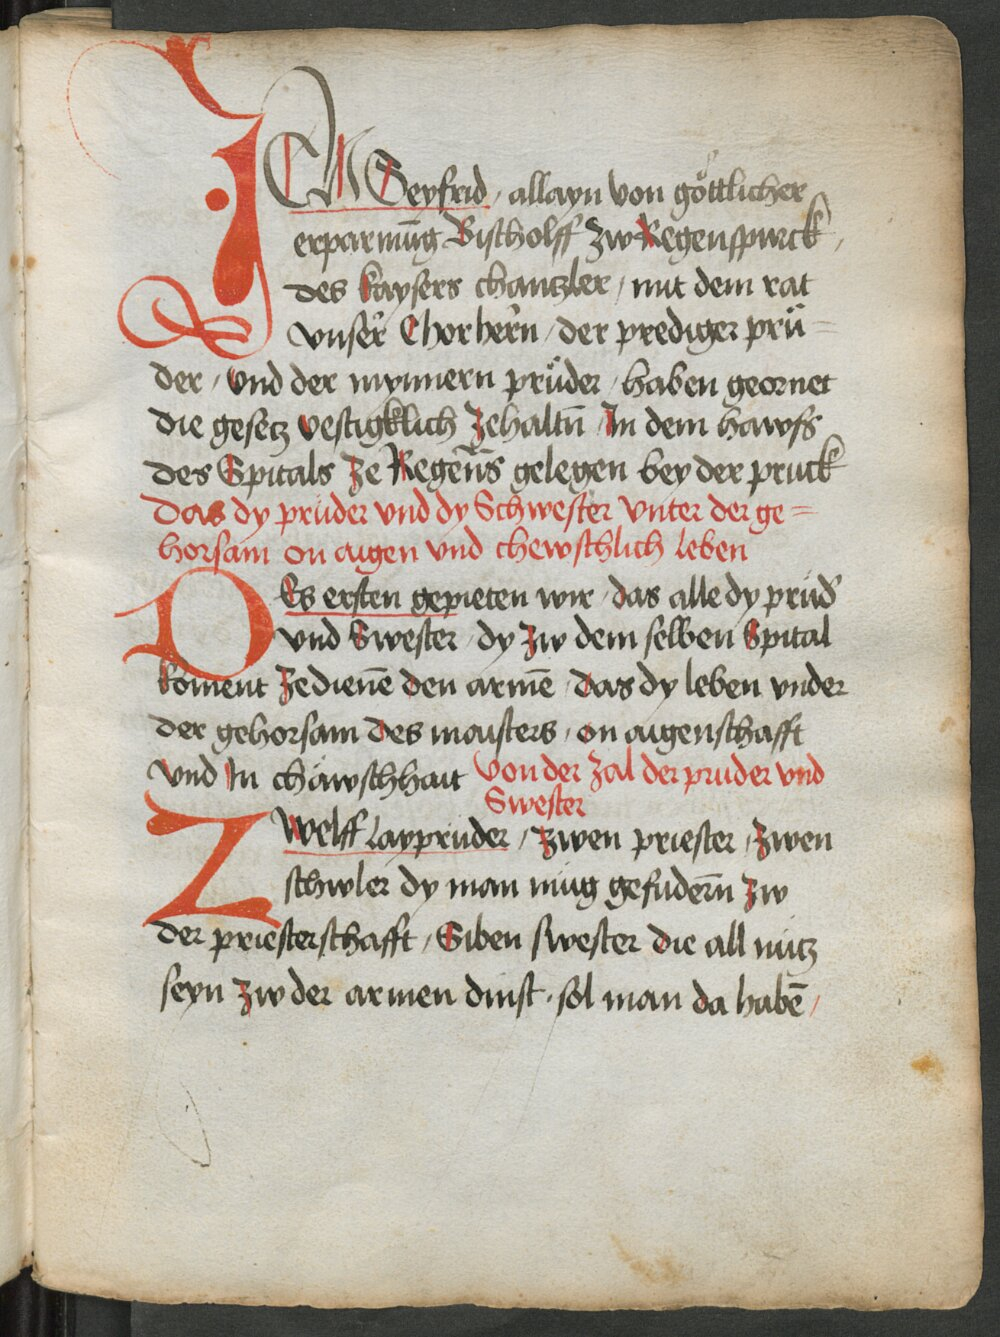 ICh Seyfrid / allayn von göttlicher
erparmūg Bischolff zw Regenspurck /
des kaysers chantzler / mit dem rat
vnser̄ Chorher̄n / der prediger prü=
der / vnd der mynnern prüder / haben geornet
die gesetz vestigklich zehaltn̄ / In dem hawss
des Spitals ze Regēns gelegen bey der pruck
Das dy prüder vnd dy Schwester vnter der ge=
horsam on aigen vnd chewschlich leben
DEs ersten gepieten wir / das alle dy prüd'
vnd Swester / dy zw dem selben Spital
kōment zedienē den armē / das dy leben vnder
der gehorsam des maisters / on aigenschafft
vnd In chäwschhait Von der zal der pruder vnd
Swester
ZWelff laypruder / zwen priester / zwen
schwler dy man müg gefudern̄ zw
der priesterschafft / Siben swester die all nütz
seyn zw der armen dinst / sol man da habē /